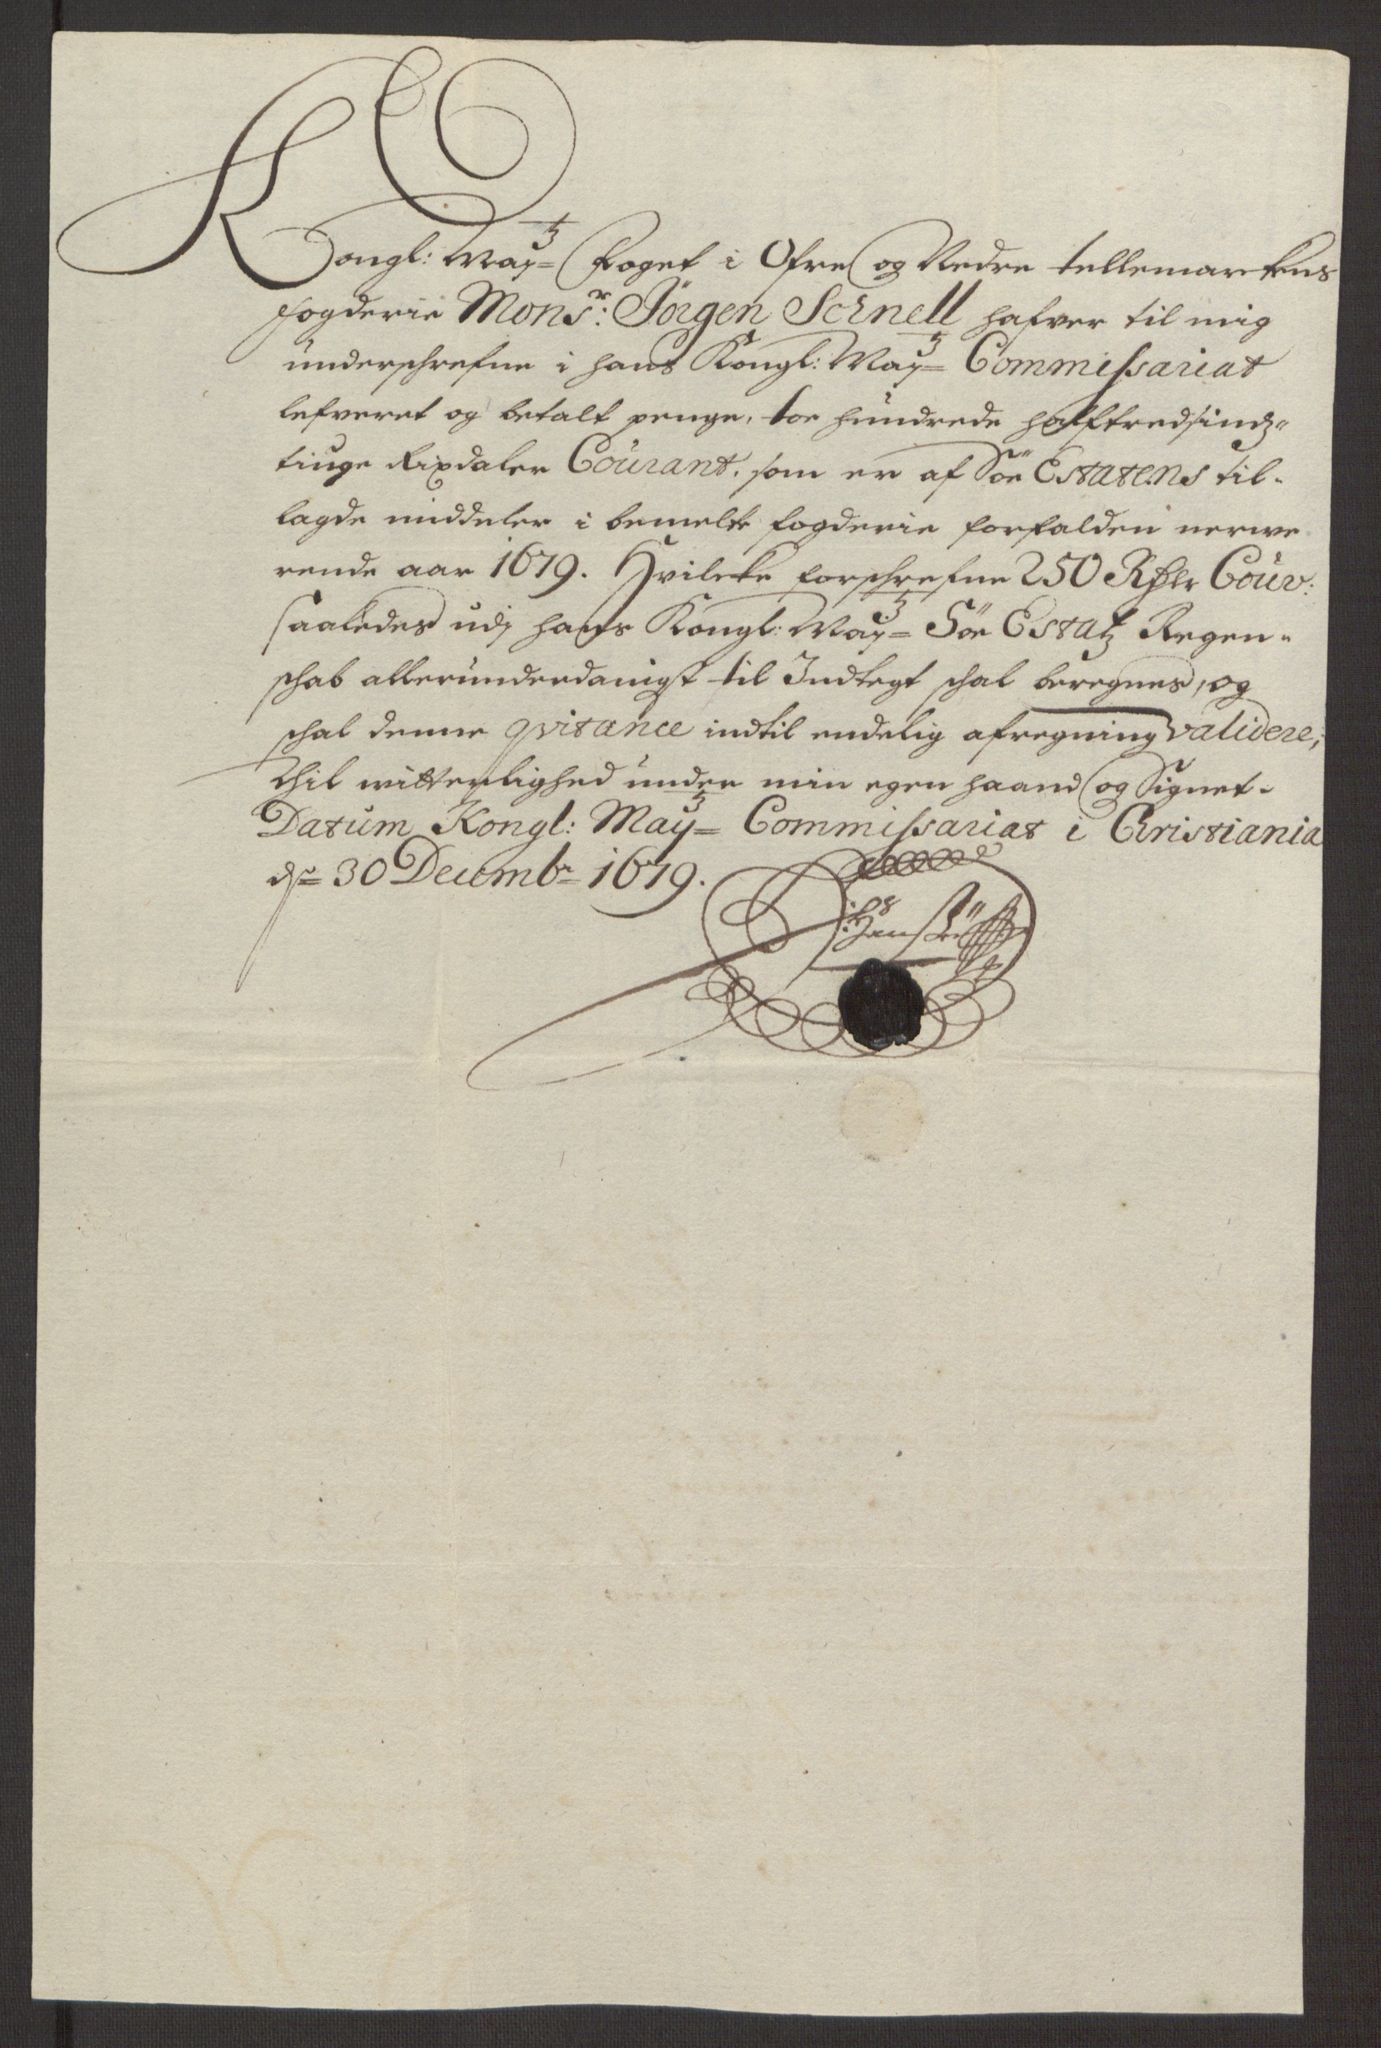 Kongl: May:tz Foget i Ofre og Nedre tellemarckens
fogderie Mons:r Jörgen Schnell hafver til mig
underschrefne i hans Kongl: May:tz Commissariat
lefveret og betalt penge, toe hundrede halftredsindz-
tiuge Rixdaler Courant, som er af Söe Estatens til-
lagde middeler i bemelte fogderie forfalden nerwe-
rende aar 1679. Hvilcke forschrefne 250 Rdlr Cour:
saaledes udj hans Kongl: May:tz Söe Estatz Regen-
schab allerunderdanigst til Indtegt schal beregnes, og
schal denne qvitance indtil endelig afregning validere;
Thil witterlighed under min egen haand og Signet.
Datum Kongl: May:tz Commissariat i Christiania
d: 30 Decembr 1679.
Hans